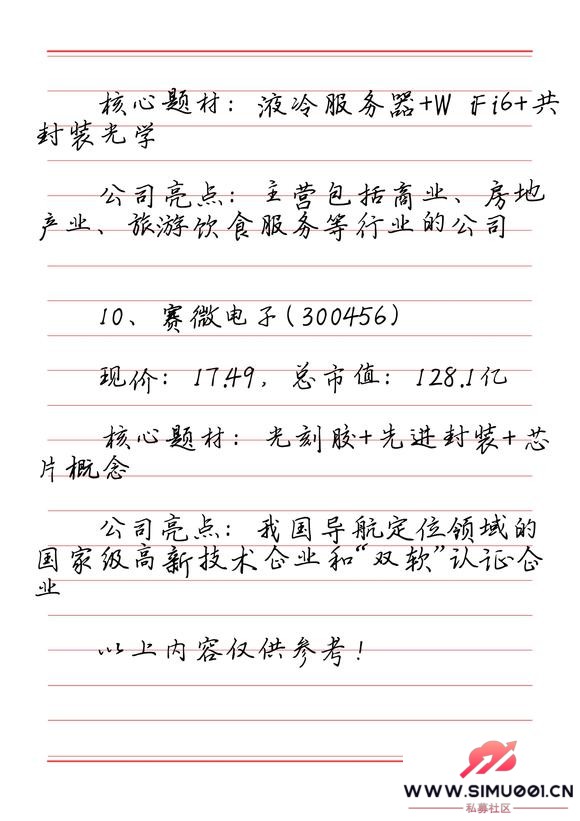 核心题材：液冷服务器+W iFi6+共
封装光学
公司亮点：主营包括商业、房地
产业、旅游饮食服务等行业的公司
10、赛微电子(300456)
现价：17.49，总市值：128.1亿
核心题材：光刻胶+先进封装+芯
片概念
公司亮点：我国导航定位领域的
国家级高新技术企业和“双软”认证企
业
以上内容仅供参考！
WWW.SIMU001.CN
私募社区